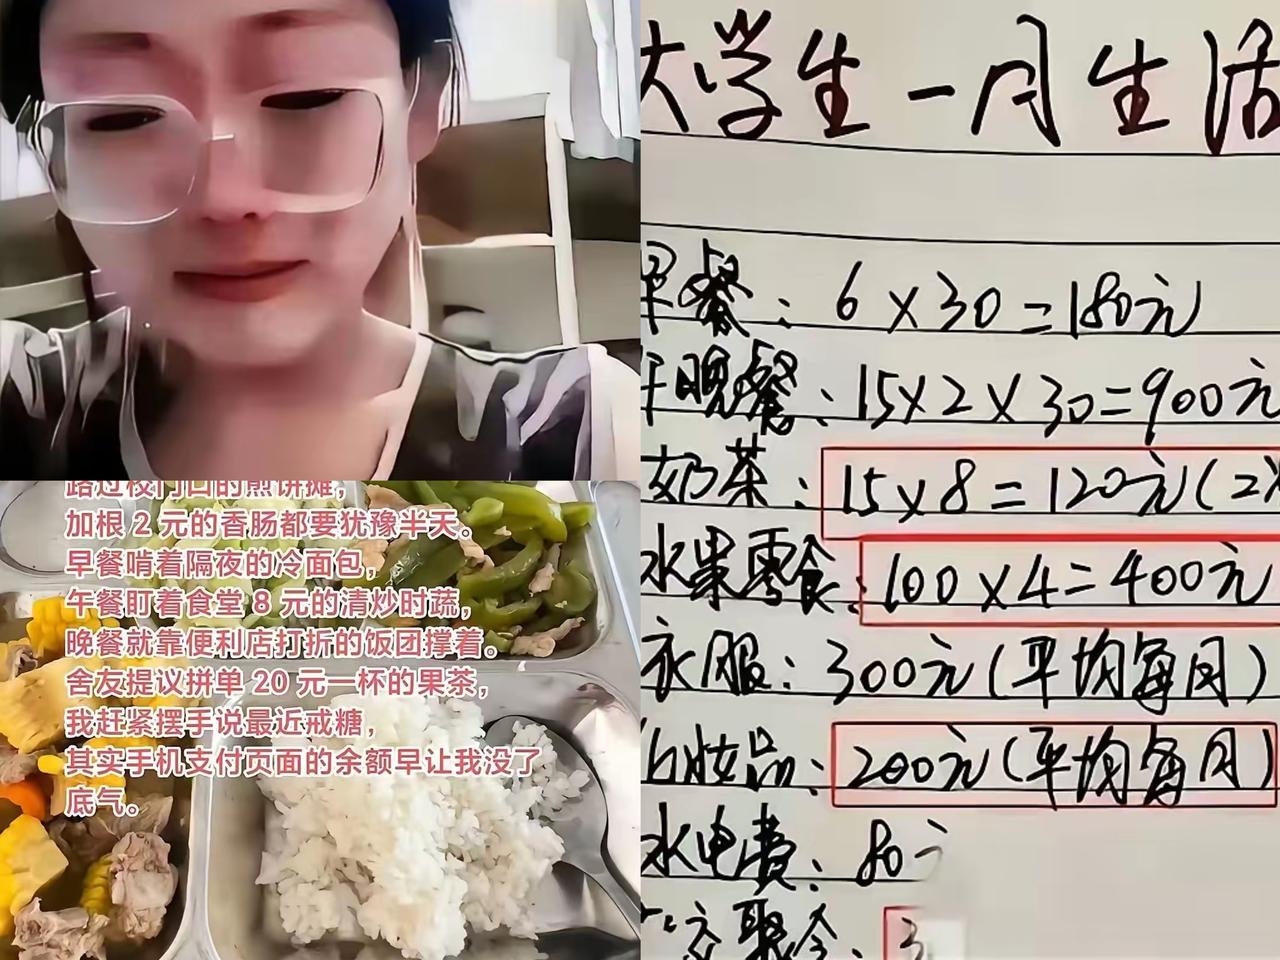 路过校门口的煎饼摊，
加根 2 元的香肠都要犹豫半天。
早餐啃着隔夜的冷面包，
午餐盯着食堂 8 元的清炒时蔬，
晚餐就靠便利店打折的饭团撑着。
舍友提议拼单 20 元一杯的果茶，
我赶紧摆手说最近戒糖，
其实手机支付页面的余额早让我没了
底气。
大学生一月生活
早餐：6×30=180元
午晚餐：15×2×30=900元
奶茶：15×8=120元(2×
水果零食：100×4=400元
衣服：300元(平均每月)
化妆品：200元(平均每月)
水电费：80元
交聚会：3